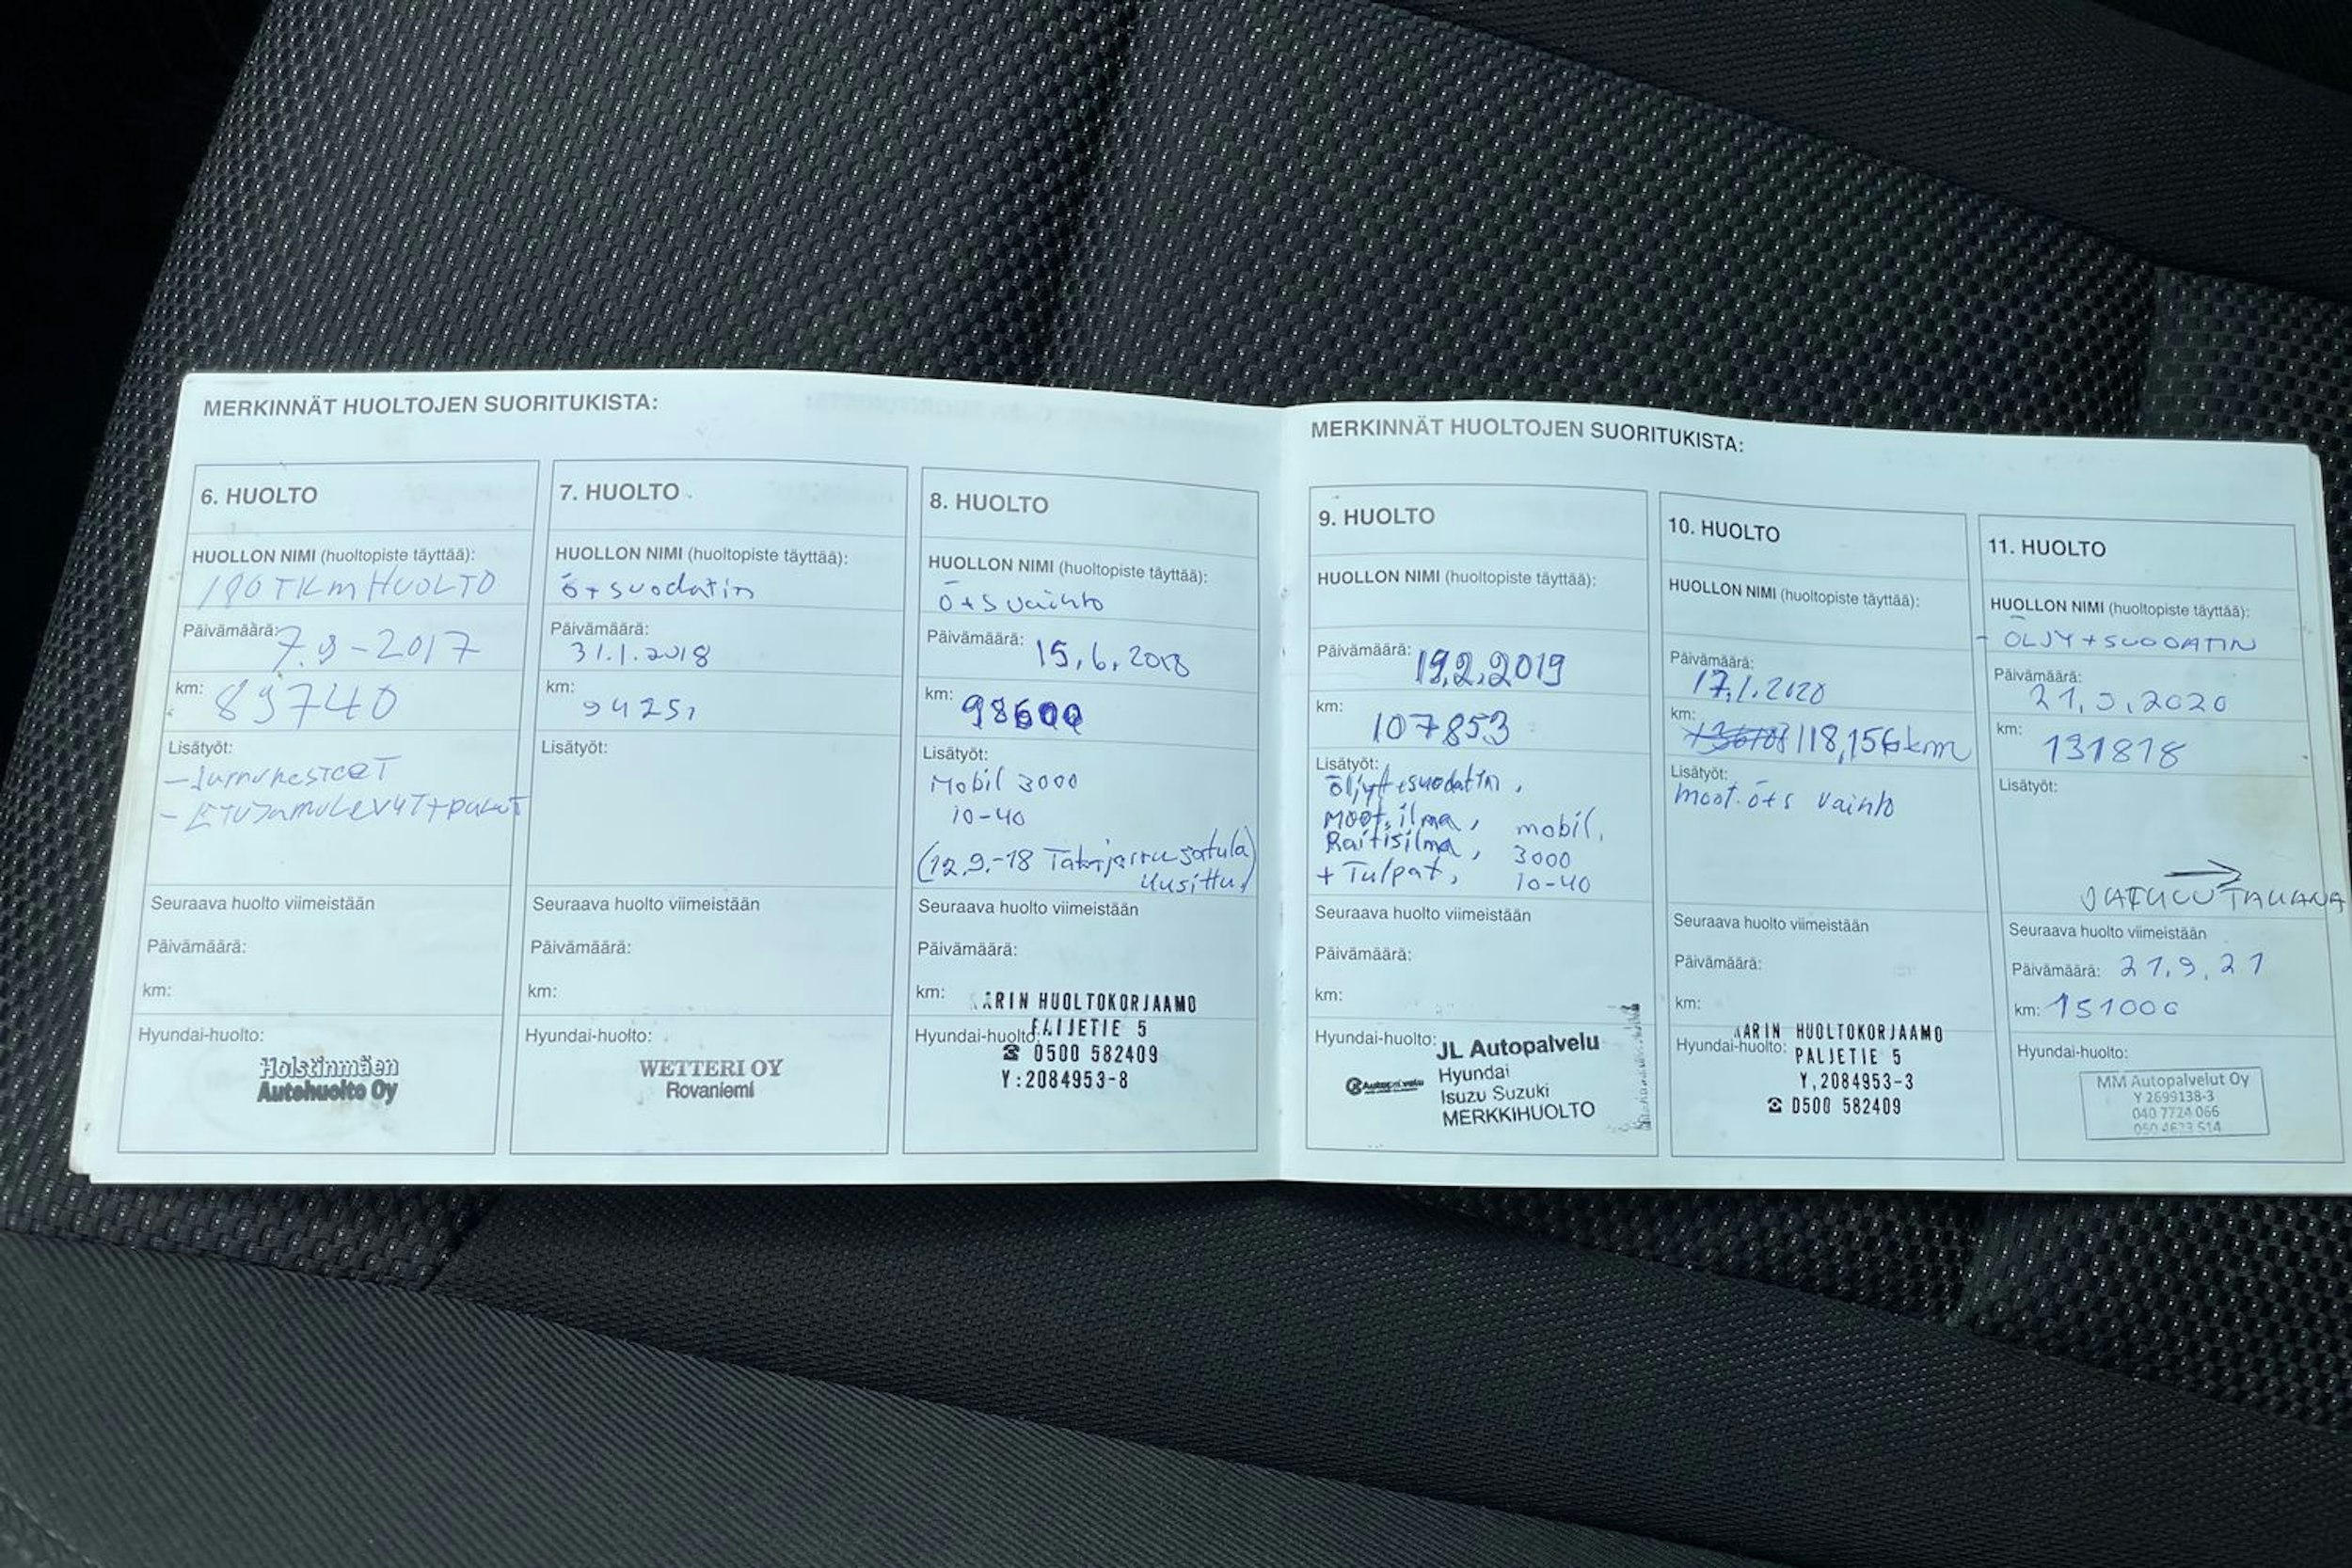 MERKINNÄT HUOLTOJEN SUORITUKISTA:
6. HUOLTO
HUOLLON NIMI (huoltopiste täyttää):
TKM HUOLTO
Päivämäärä: 7.9-2017
km: 89740
Lisätyöt:
- Jarrunesteet
- ETUJARRULEVYT+palat
Seuraava huolto viimeistään
Päivämäärä:
km:
Hyundai-huolto:
Holstinmäen
Autohuolto Oy
7. HUOLTO
HUOLLON NIMI (huoltopiste täyttää):
ö+suodatin
Päivämäärä:
31.1.2018
km:
94251
Lisätyöt:
Seuraava huolto viimeistään
Päivämäärä:
km:
Hyundai-huolto:
WETTERI OY
Rovaniemi
8. HUOLTO
HUOLLON NIMI (huoltopiste täyttää):
ö+s vaihto
Päivämäärä: 15.6.2018
km: 98600
Lisätyöt:
Mobil 3000
10-40
(12.9.-18 Takajarru satula
uusittu)
Seuraava huolto viimeistään
Päivämäärä:
km:
ARIN HUOLTOKORJAAMO
Hyundai-huolto:
PALJETIE 5
☎ 0500 582409
Y:2084953-8
MERKINNÄT HUOLTOJEN SUORITUKISTA:
9. HUOLTO
HUOLLON NIMI (huoltopiste täyttää):
Päivämäärä: 19.2.2019
km: 107853
Lisätyöt:
öljyt+suodatin,
moot.ilma, mobil.
Raitisilma, 3000
+ Tulpat, 10-40
Seuraava huolto viimeistään
Päivämäärä:
km:
Hyundai-huolto:
JL Autopalvelu
Hyundai
Isuzu Suzuki
MERKKIHUOLTO
10. HUOLTO
HUOLLON NIMI (huoltopiste täyttää):
Päivämäärä:
17.1.2020
km: 118,156km
Lisätyöt:
moot. ö+s vaihto
Seuraava huolto viimeistään
Päivämäärä:
km:
ARIN HUOLTOKORJAAMO
Hyundai-huolto:
PALJETIE 5
Y,2084953-3
☎ 0500 582409
11. HUOLTO
HUOLLON NIMI (huoltopiste täyttää):
- ÖLJY+SUODATIN
Päivämäärä:
21.9.2020
km: 131818
Lisätyöt:
→
JATKUU TAKANA
Seuraava huolto viimeistään
Päivämäärä: 21.9.21
km: 151000
Hyundai-huolto:
MM Autopalvelut Oy
Y 2699138-3
040 7724 066
050 4623 514